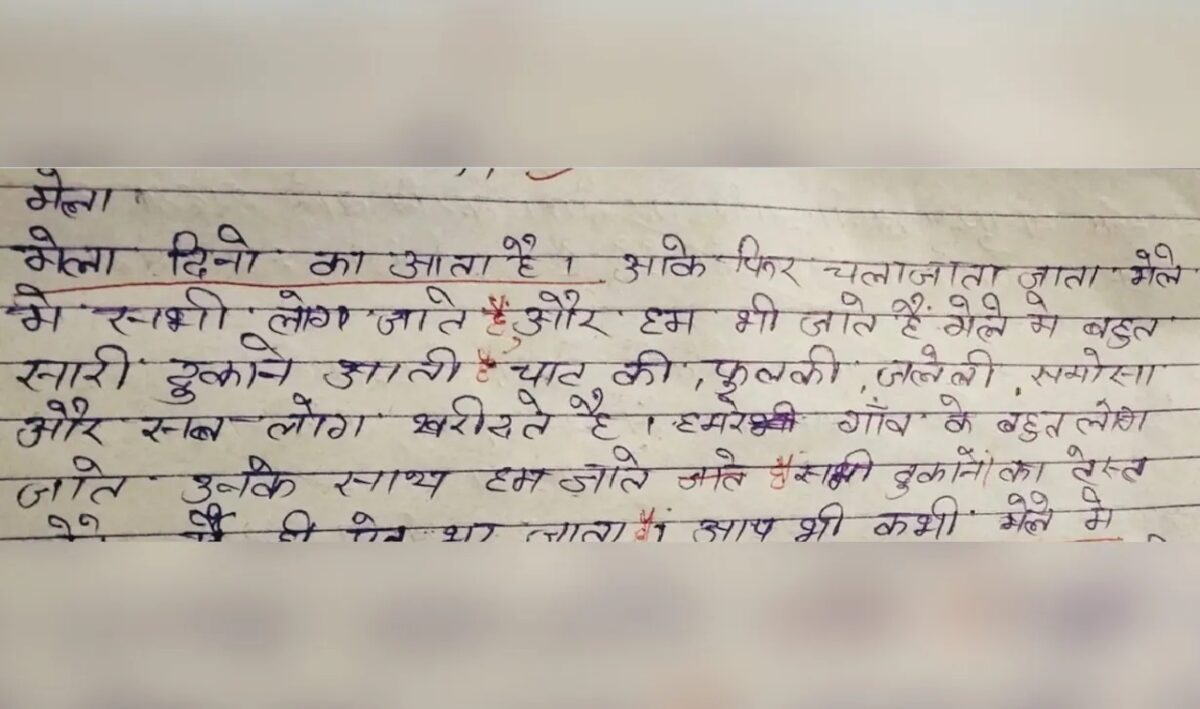 मेला
मेला दिनो का आता है। आके फिर चलाजाता जाता मेले
मे सभी लोग जाते हैं, और हम भी जाते हैं मेले मे बहुत
सारी दुकाने आती है चाट की, फुलकी, जलेली, समोसा
और सब लोग खरीदते है। हमरे गाँव के बहुत लोग
जाते उनके साथ हम जाते जाते हैं सभी दुकानों का टेस्त
ही पेट भर जाता है। आप भी कभी मेले मे